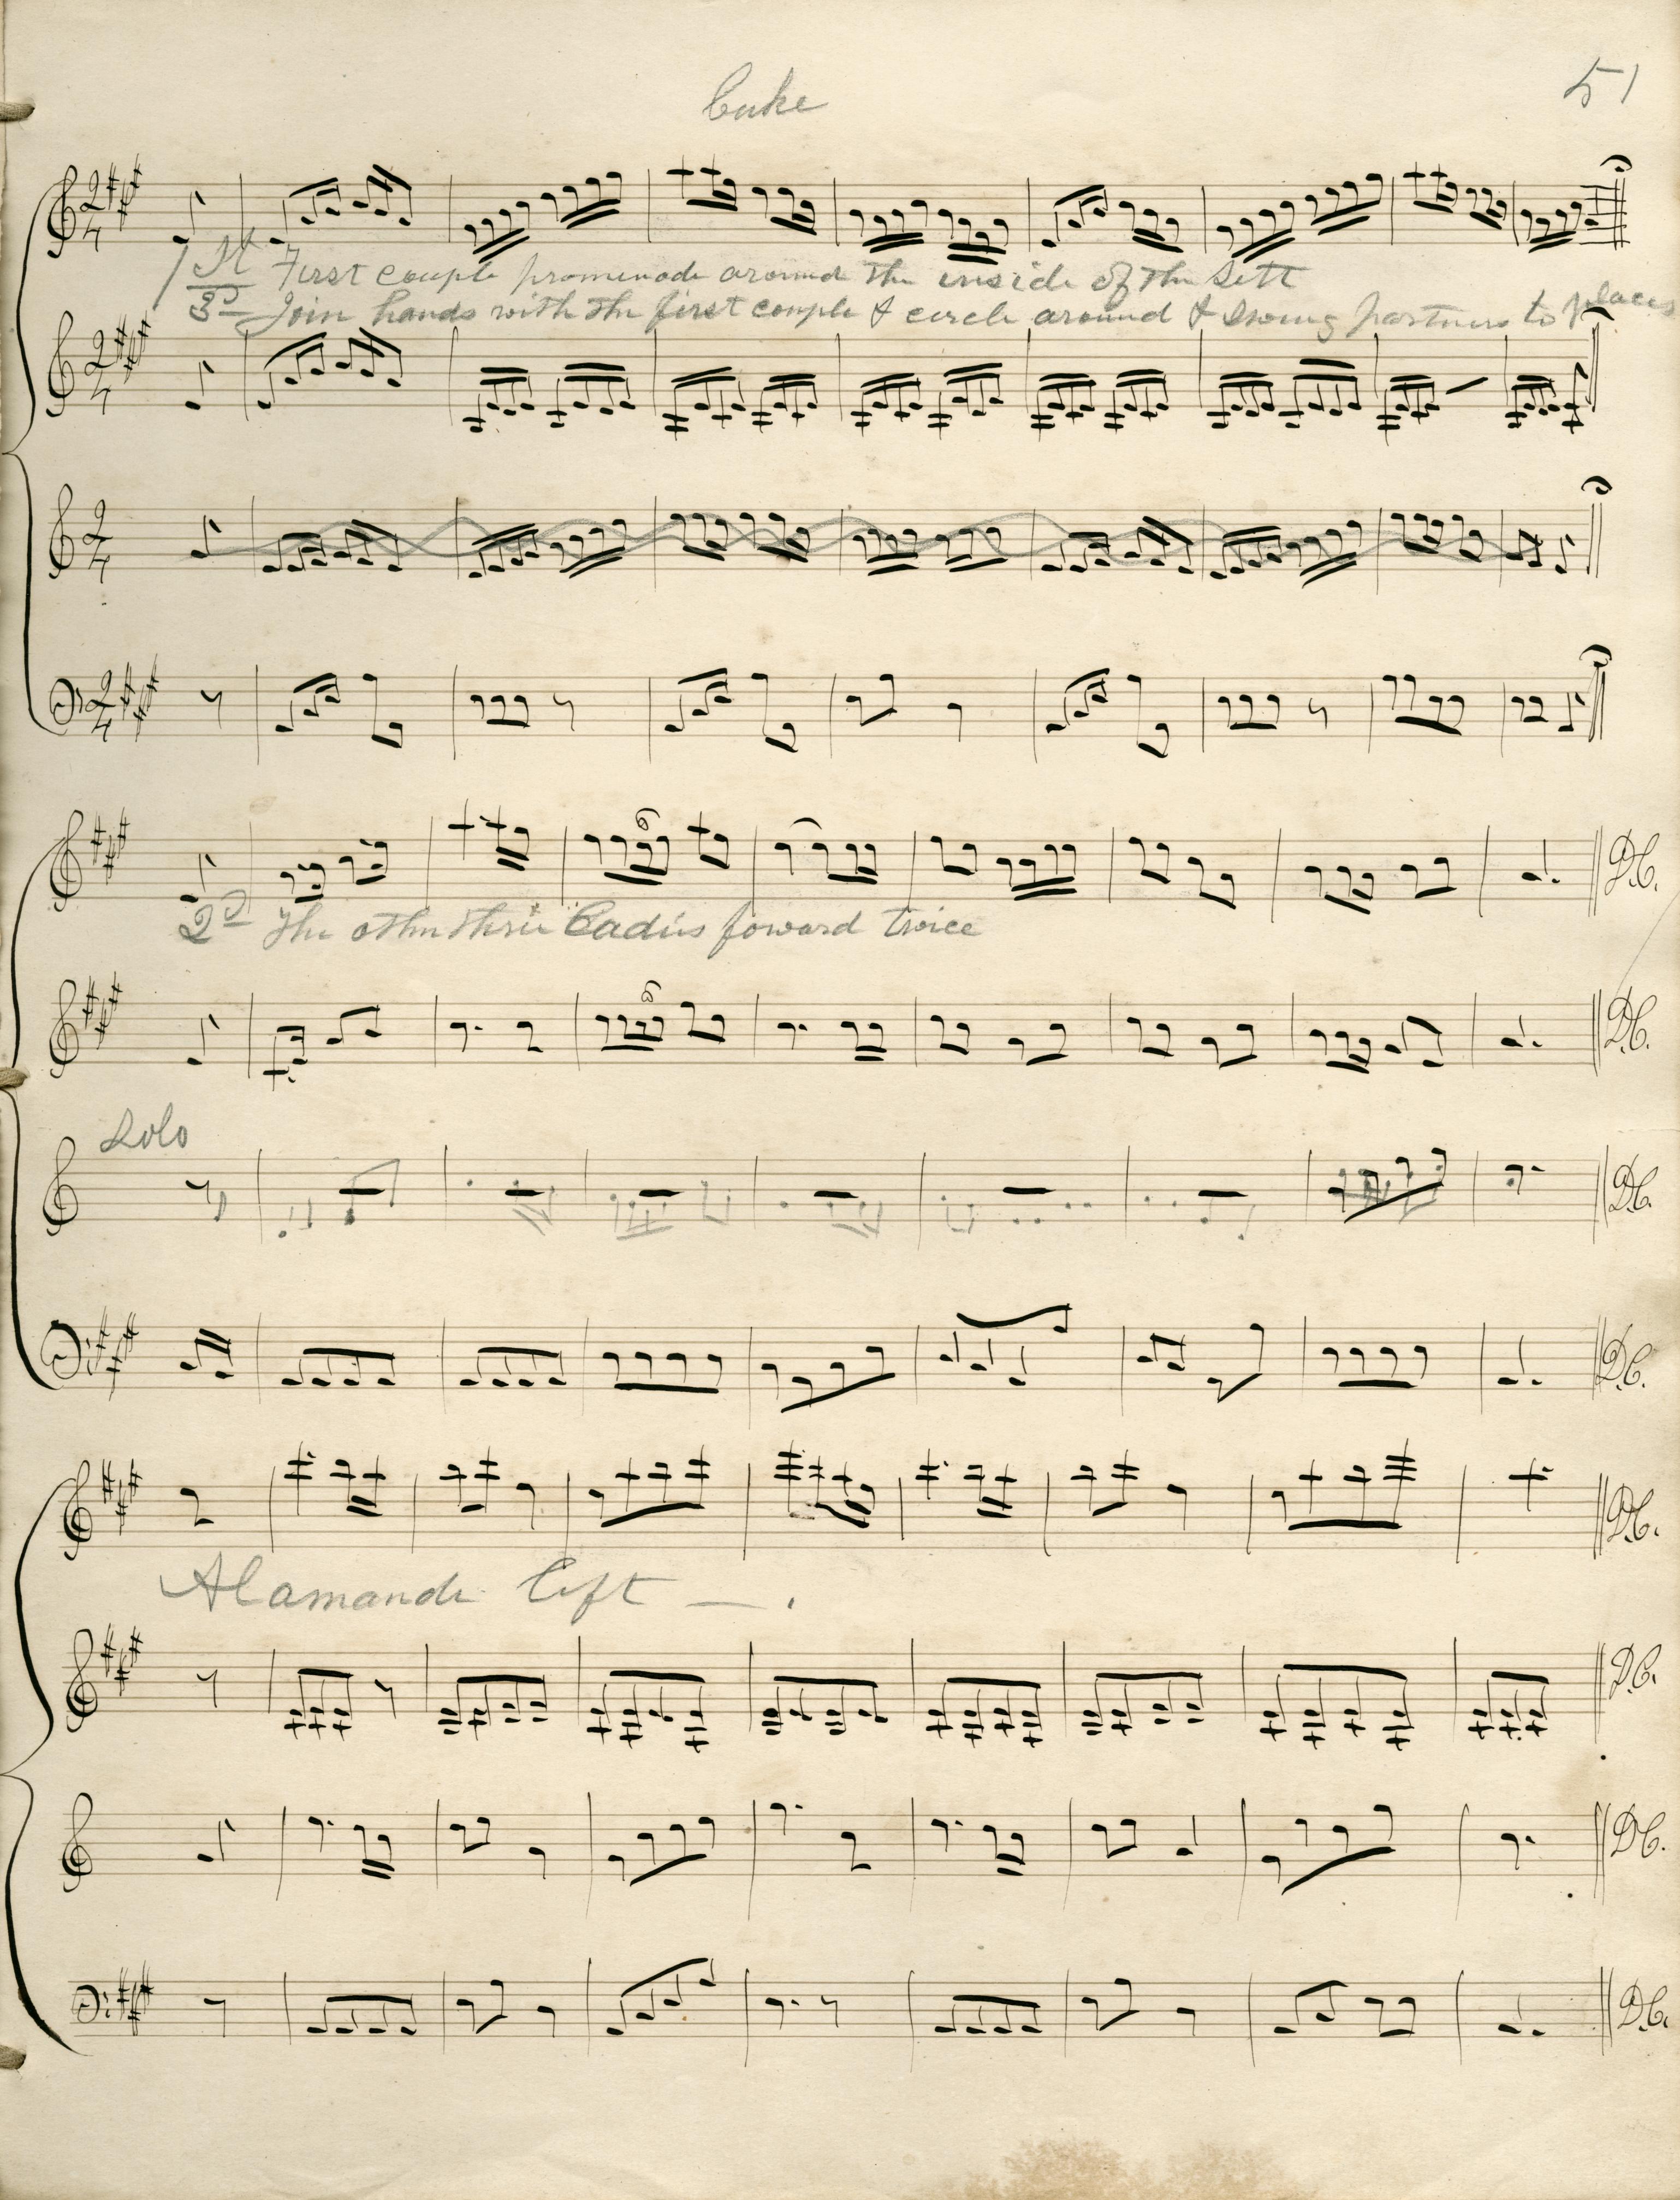 Cake
51
1st First couple promenade around the inside of the Sett
3D Join hands with the first couple & circle around & swing partners to places
D.C.
2D The other three Ladies foward twice
D.C.
Solo
D.C.
D.C.
D.C.
Alamande left —.
D.C.
D.C.
D.C.